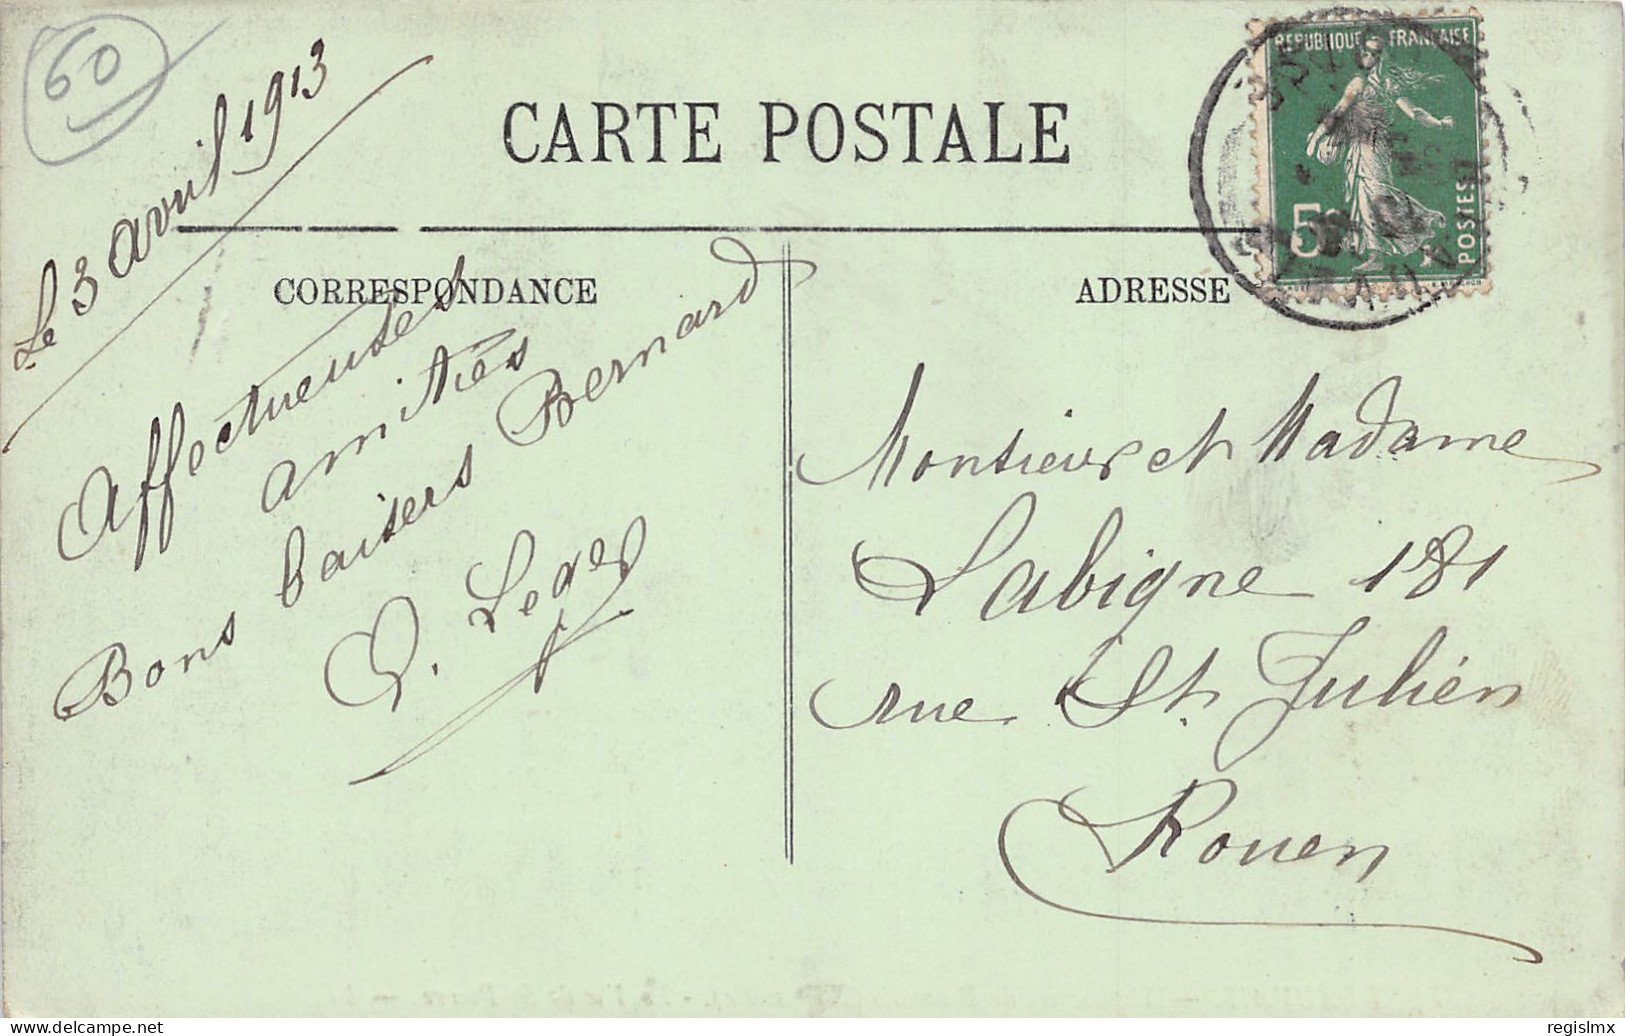 60
Le 3 avril 1913
CARTE POSTALE
REPUBLIQUE FRANCAISE
5
POSTES
CORRESPONDANCE
ADRESSE
Affectueuses
amitiés
Bons baisers Bernard
Leger
Monsieur et Madame
Labigne 181
rue St. Julien
Rouen
www.delcampe.net
regislmx